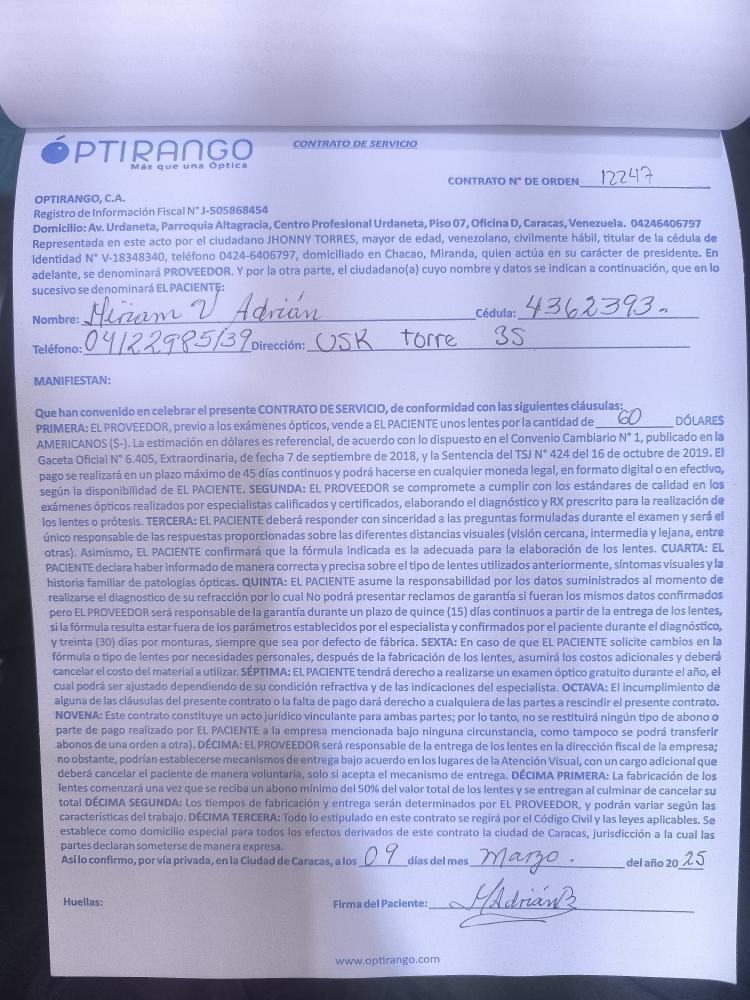 ÓPTIRANGO
Más que una Óptica
CONTRATO DE SERVICIO
CONTRATO N° DE ORDEN 12247
OPTIRANGO, C.A.
Registro de Información Fiscal N° J-505868454
Domicilio: Av. Urdaneta, Parroquia Altagracia, Centro Profesional Urdaneta, Piso 07, Oficina D, Caracas, Venezuela. 04246406797
Representada en este acto por el ciudadano JHONNY TORRES, mayor de edad, venezolano, civilmente hábil, titular de la cédula de
identidad N° V-18348340, teléfono 0424-6406797, domiciliado en Chacao, Miranda, quien actúa en su carácter de presidente. En
adelante, se denominará PROVEEDOR. Y por la otra parte, el ciudadano(a) cuyo nombre y datos se indican a continuación, que en lo
sucesivo se denominará EL PACIENTE:
Nombre: Miriam V Adrián Cédula: 4362393.
Teléfono: 04122985139 Dirección: USK torre 35
MANIFIESTAN:
Que han convenido en celebrar el presente CONTRATO DE SERVICIO, de conformidad con las siguientes cláusulas:
PRIMERA: EL PROVEEDOR, previo a los exámenes ópticos, vende a EL PACIENTE unos lentes por la cantidad de 60 DÓLARES
AMERICANOS ($-). La estimación en dólares es referencial, de acuerdo con lo dispuesto en el Convenio Cambiario N° 1, publicado en la
Gaceta Oficial N° 6.405, Extraordinaria, de fecha 7 de septiembre de 2018, y la Sentencia del TSJ N° 424 del 16 de octubre de 2019. El
pago se realizará en un plazo máximo de 45 días continuos y podrá hacerse en cualquier moneda legal, en formato digital o en efectivo,
según la disponibilidad de EL PACIENTE. SEGUNDA: EL PROVEEDOR se compromete a cumplir con los estándares de calidad en los
exámenes ópticos realizados por especialistas calificados y certificados, elaborando el diagnóstico y RX prescrito para la realización de
los lentes o prótesis. TERCERA: EL PACIENTE deberá responder con sinceridad a las preguntas formuladas durante el examen y será el
único responsable de las respuestas proporcionadas sobre las diferentes distancias visuales (visión cercana, intermedia y lejana, entre
otras). Asimismo, EL PACIENTE confirmará que la fórmula indicada es la adecuada para la elaboración de los lentes. CUARTA: EL
PACIENTE declara haber informado de manera correcta y precisa sobre el tipo de lentes utilizados anteriormente, síntomas visuales y la
historia familiar de patologías ópticas. QUINTA: EL PACIENTE asume la responsabilidad por los datos suministrados al momento de
realizarse el diagnostico de su refracción por lo cual No podrá presentar reclamos de garantía si fueran los mismos datos confirmados
pero EL PROVEEDOR será responsable de la garantía durante un plazo de quince (15) días continuos a partir de la entrega de los lentes,
si la fórmula resulta estar fuera de los parámetros establecidos por el especialista y confirmados por el paciente durante el diagnóstico,
y treinta (30) días por monturas, siempre que sea por defecto de fábrica. SEXTA: En caso de que EL PACIENTE solicite cambios en la
fórmula o tipo de lentes por necesidades personales, después de la fabricación de los lentes, asumirá los costos adicionales y deberá
cancelar el costo del material a utilizar. SÉPTIMA: EL PACIENTE tendrá derecho a realizarse un examen óptico gratuito durante el año, el
cual podrá ser ajustado dependiendo de su condición refractiva y de las indicaciones del especialista. OCTAVA: El incumplimiento de
alguna de las cláusulas del presente contrato o la falta de pago dará derecho a cualquiera de las partes a rescindir el presente contrato.
NOVENA: Este contrato constituye un acto jurídico vinculante para ambas partes; por lo tanto, no se restituirá ningún tipo de abono o
parte de pago realizado por EL PACIENTE a la empresa mencionada bajo ninguna circunstancia, como tampoco se podrá transferir
abonos de una orden a otra). DÉCIMA: EL PROVEEDOR será responsable de la entrega de los lentes en la dirección fiscal de la empresa;
no obstante, podrían establecerse mecanismos de entrega bajo acuerdo en los lugares de la Atención Visual, con un cargo adicional que
deberá cancelar el paciente de manera voluntaria, solo si acepta el mecanismo de entrega. DÉCIMA PRIMERA: La fabricación de los
lentes comenzará una vez que se reciba un abono mínimo del 50% del valor total de los lentes y se entregan al culminar de cancelar su
total DÉCIMA SEGUNDA: Los tiempos de fabricación y entrega serán determinados por EL PROVEEDOR, y podrán variar según las
características del trabajo. DÉCIMA TERCERA: Todo lo estipulado en este contrato se regirá por el Código Civil y las leyes aplicables. Se
establece como domicilio especial para todos los efectos derivados de este contrato la ciudad de Caracas, jurisdicción a la cual las
partes declaran someterse de manera expresa.
Así lo confirmo, por vía privada, en la Ciudad de Caracas, a los 09 días del mes Marzo. del año 2025
Huellas: Firma del Paciente: MAdriánB
www.optirango.com